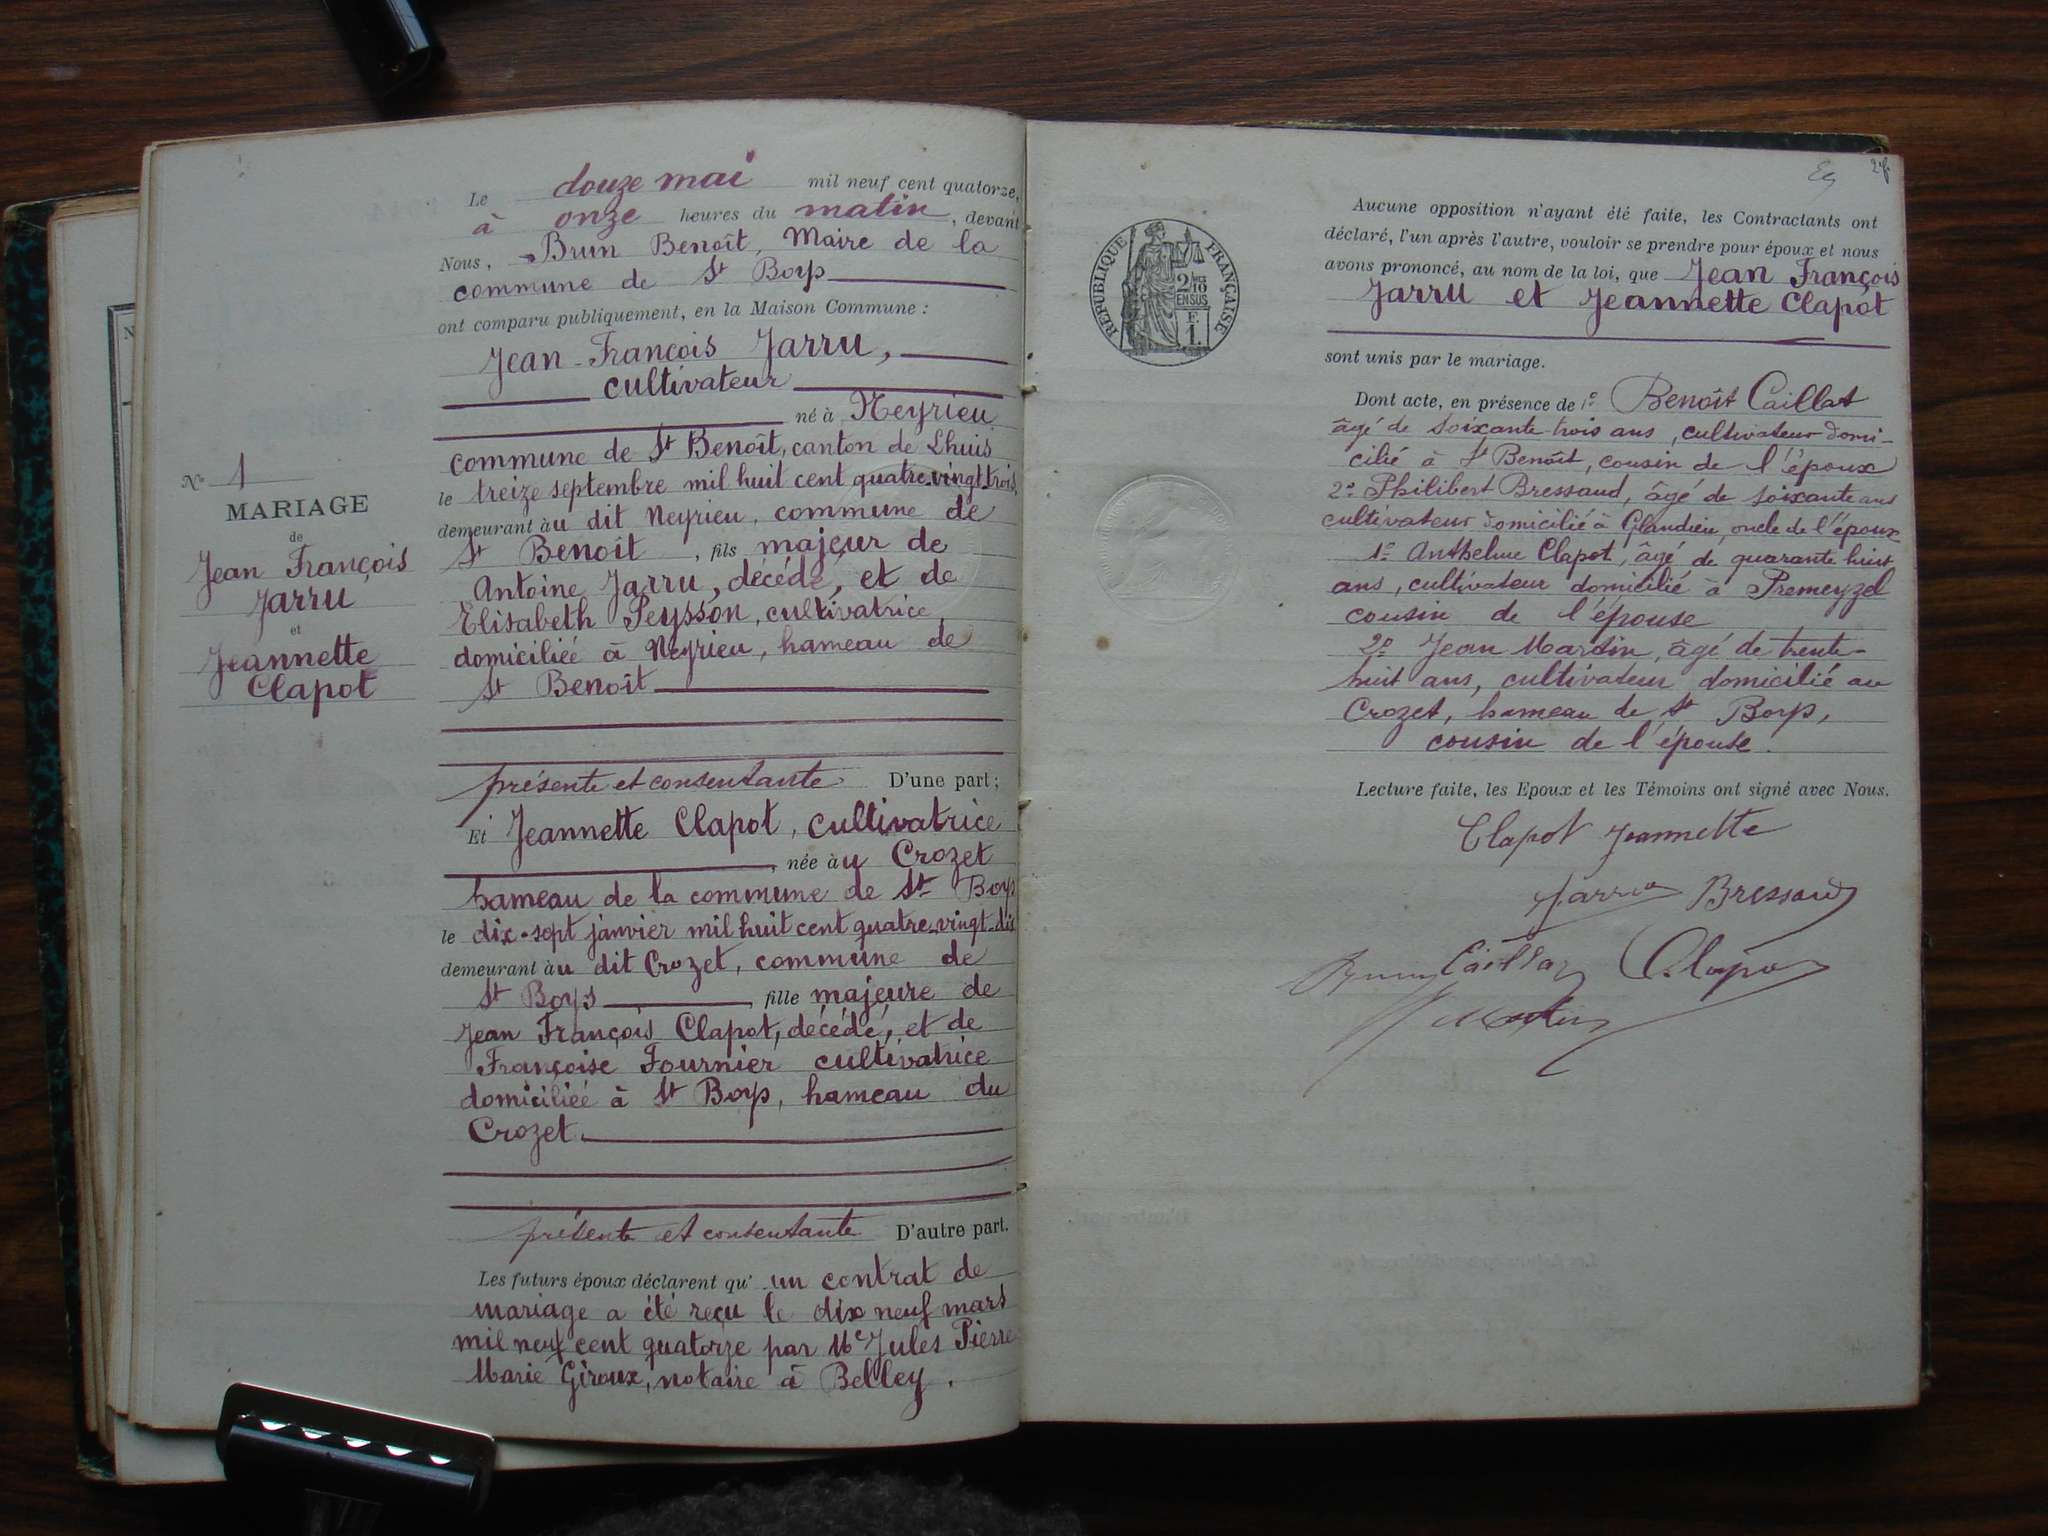 Le douze mai mil neuf cent quatorze,
à onze heures du matin, devant
Nous, Brun Benoît, Maire de la
commune de St Boys
ont comparu publiquement, en la Maison Commune :
Jean-François Jarru,
cultivateur
né à Neyrieu
commune de St Benoît, canton de Lhuis
le treize septembre mil huit cent quatre-vingt-trois
demeurant àu dit Neyrieu, commune de
St Benoît, fils majeur de
Antoine Jarru, décédé, et de
Elisabeth Peysson, cultivatrice
domiciliée à Neyrieu, hameau de
St Benoît
présente et consentante D'une part;
Et Jeannette Clapot, cultivatrice
, née àu Crozet
hameau de la commune de St Boys
le dix-sept janvier mil huit cent quatre-vingt-dix
demeurant àu dit Crozet, commune de
St Boys, fille majeure de
Jean François Clapot, décédé, et de
Françoise Fournier cultivatrice
domiciliée à St Boys, hameau du
Crozet.
présente et consentante D'autre part.
Les futurs époux déclarent qu' un contrat de
mariage a été reçu le dix neuf mars
mil neuf cent quatorze par Me Jules Pierre
Marie Giroux, notaire à Belley.
No 1
MARIAGE
de
Jean François
Jarru
et
Jeannette
Clapot
RÉPUBLIQUE FRANÇAISE
2/10
EN SUS
F.
1.
Aucune opposition n'ayant été faite, les Contractants ont
déclaré, l'un après l'autre, vouloir se prendre pour époux et nous
avons prononcé, au nom de la loi, que Jean François
Jarru et Jeannette Clapot
sont unis par le mariage.
Dont acte, en présence de 1o Benoît Caillat
âgé de soixante-trois ans, cultivateur domi-
cilié à St Benoît, cousin de l'époux
2o Philibert Bressaud, âgé de soixante ans
cultivateur domicilié à Glandieu, oncle de l'époux
1o Anthelme Clapot, âgé de quarante huit
ans, cultivateur domicilié à Premeyzel
cousin de l'épouse
2o Jean Martin, âgé de trente-
huit ans, cultivateur domicilié au
Crozet, hameau de St Boys,
cousin de l'épouse.
Lecture faite, les Epoux et les Témoins ont signé avec Nous.
Clapot Jeannette
Jarru Bressaud
Brun Caillat Clapot
Martin